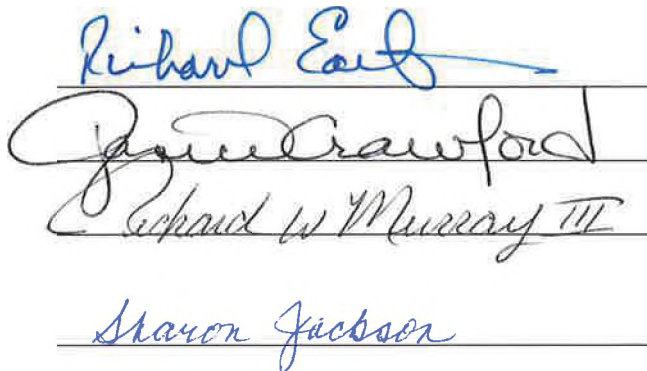 Richard
Crawford
Richard W Murray III
Sharon Jackson